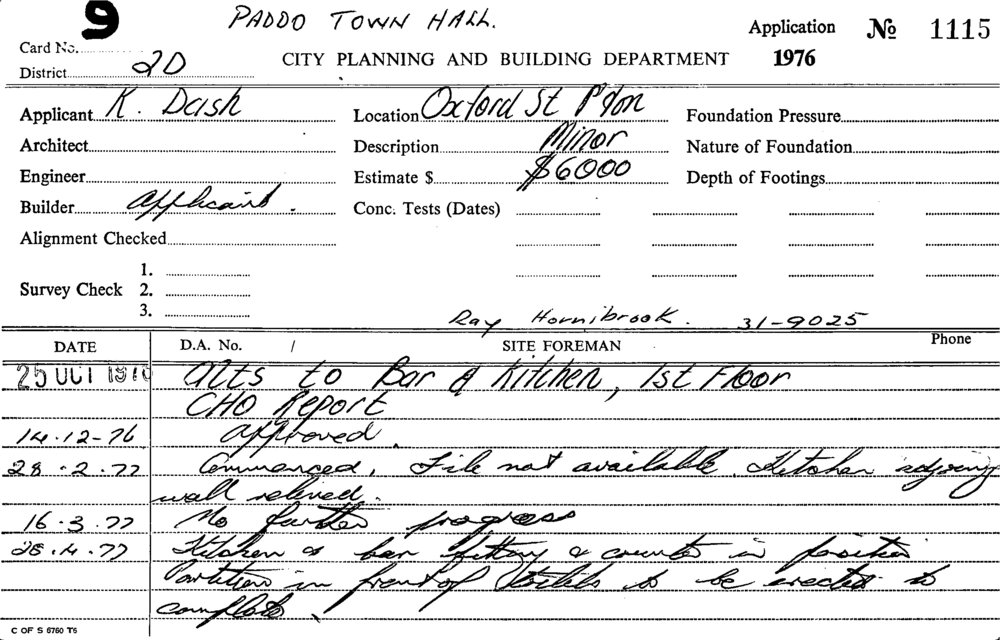 9 PADDO TOWN HALL. Application No 1115
Card No.
District 2D CITY PLANNING AND BUILDING DEPARTMENT 1976
Applicant K. Dash Location Oxford St P'ton Foundation Pressure
Architect Description Minor Nature of Foundation
Engineer Estimate $ $6000 Depth of Footings
Builder Applicant. Conc. Tests (Dates)
Alignment Checked
1.
Survey Check 2.
3.
Ray Hornibrook. 31-9025
DATE D.A. No. / SITE FOREMAN Phone
25 OCT 1976 Alts to Bar & Kitchen, 1st Floor
CHO Report
14.12-76 Approved.
28.2.77 Commenced. File not available. Kitchen
wall.
16.3.77 No further progress
28.4.77 Kitchen & bar fitting & counter in position
Partition in front of to be erected to
complete.
C OF S 6760 T6